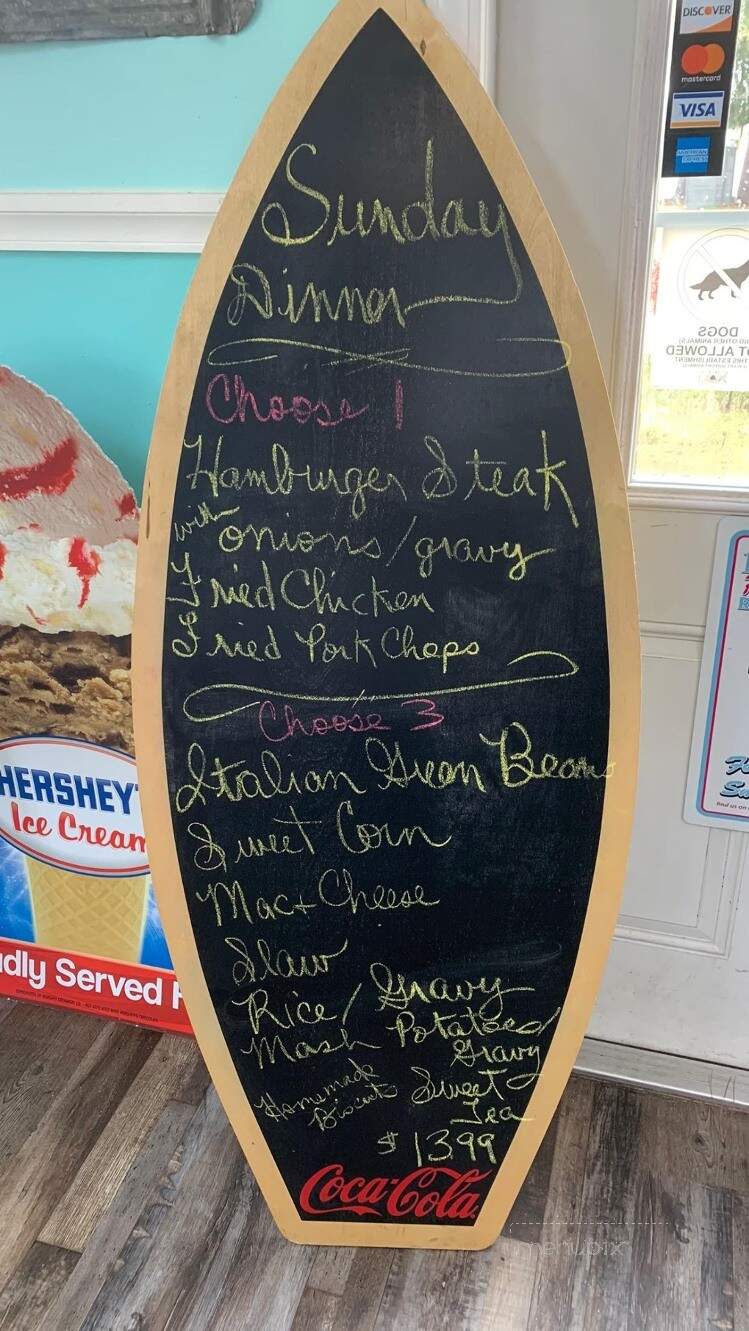 Sunday
Dinner
Choose 1
Hamburger Steak
with onions/gravy
Fried Chicken
Fried Pork Chops
Choose 3
Italian Green Beans
Sweet Corn
Mac + Cheese
Slaw
Rice/Gravy
Mash Potatoes/
Gravy
Homemade
Biscuits
Sweet
Tea
$13.99
Coca-Cola
HERSHEY'
Ice Cream
dly Served
DISCOVER
mastercard
VISA
AMERICAN
EXPRESS
DOGS
AND OTHER ANIMALS)
OT ALLOWED
THIS ESTABLISHMENT
find us on
menupix